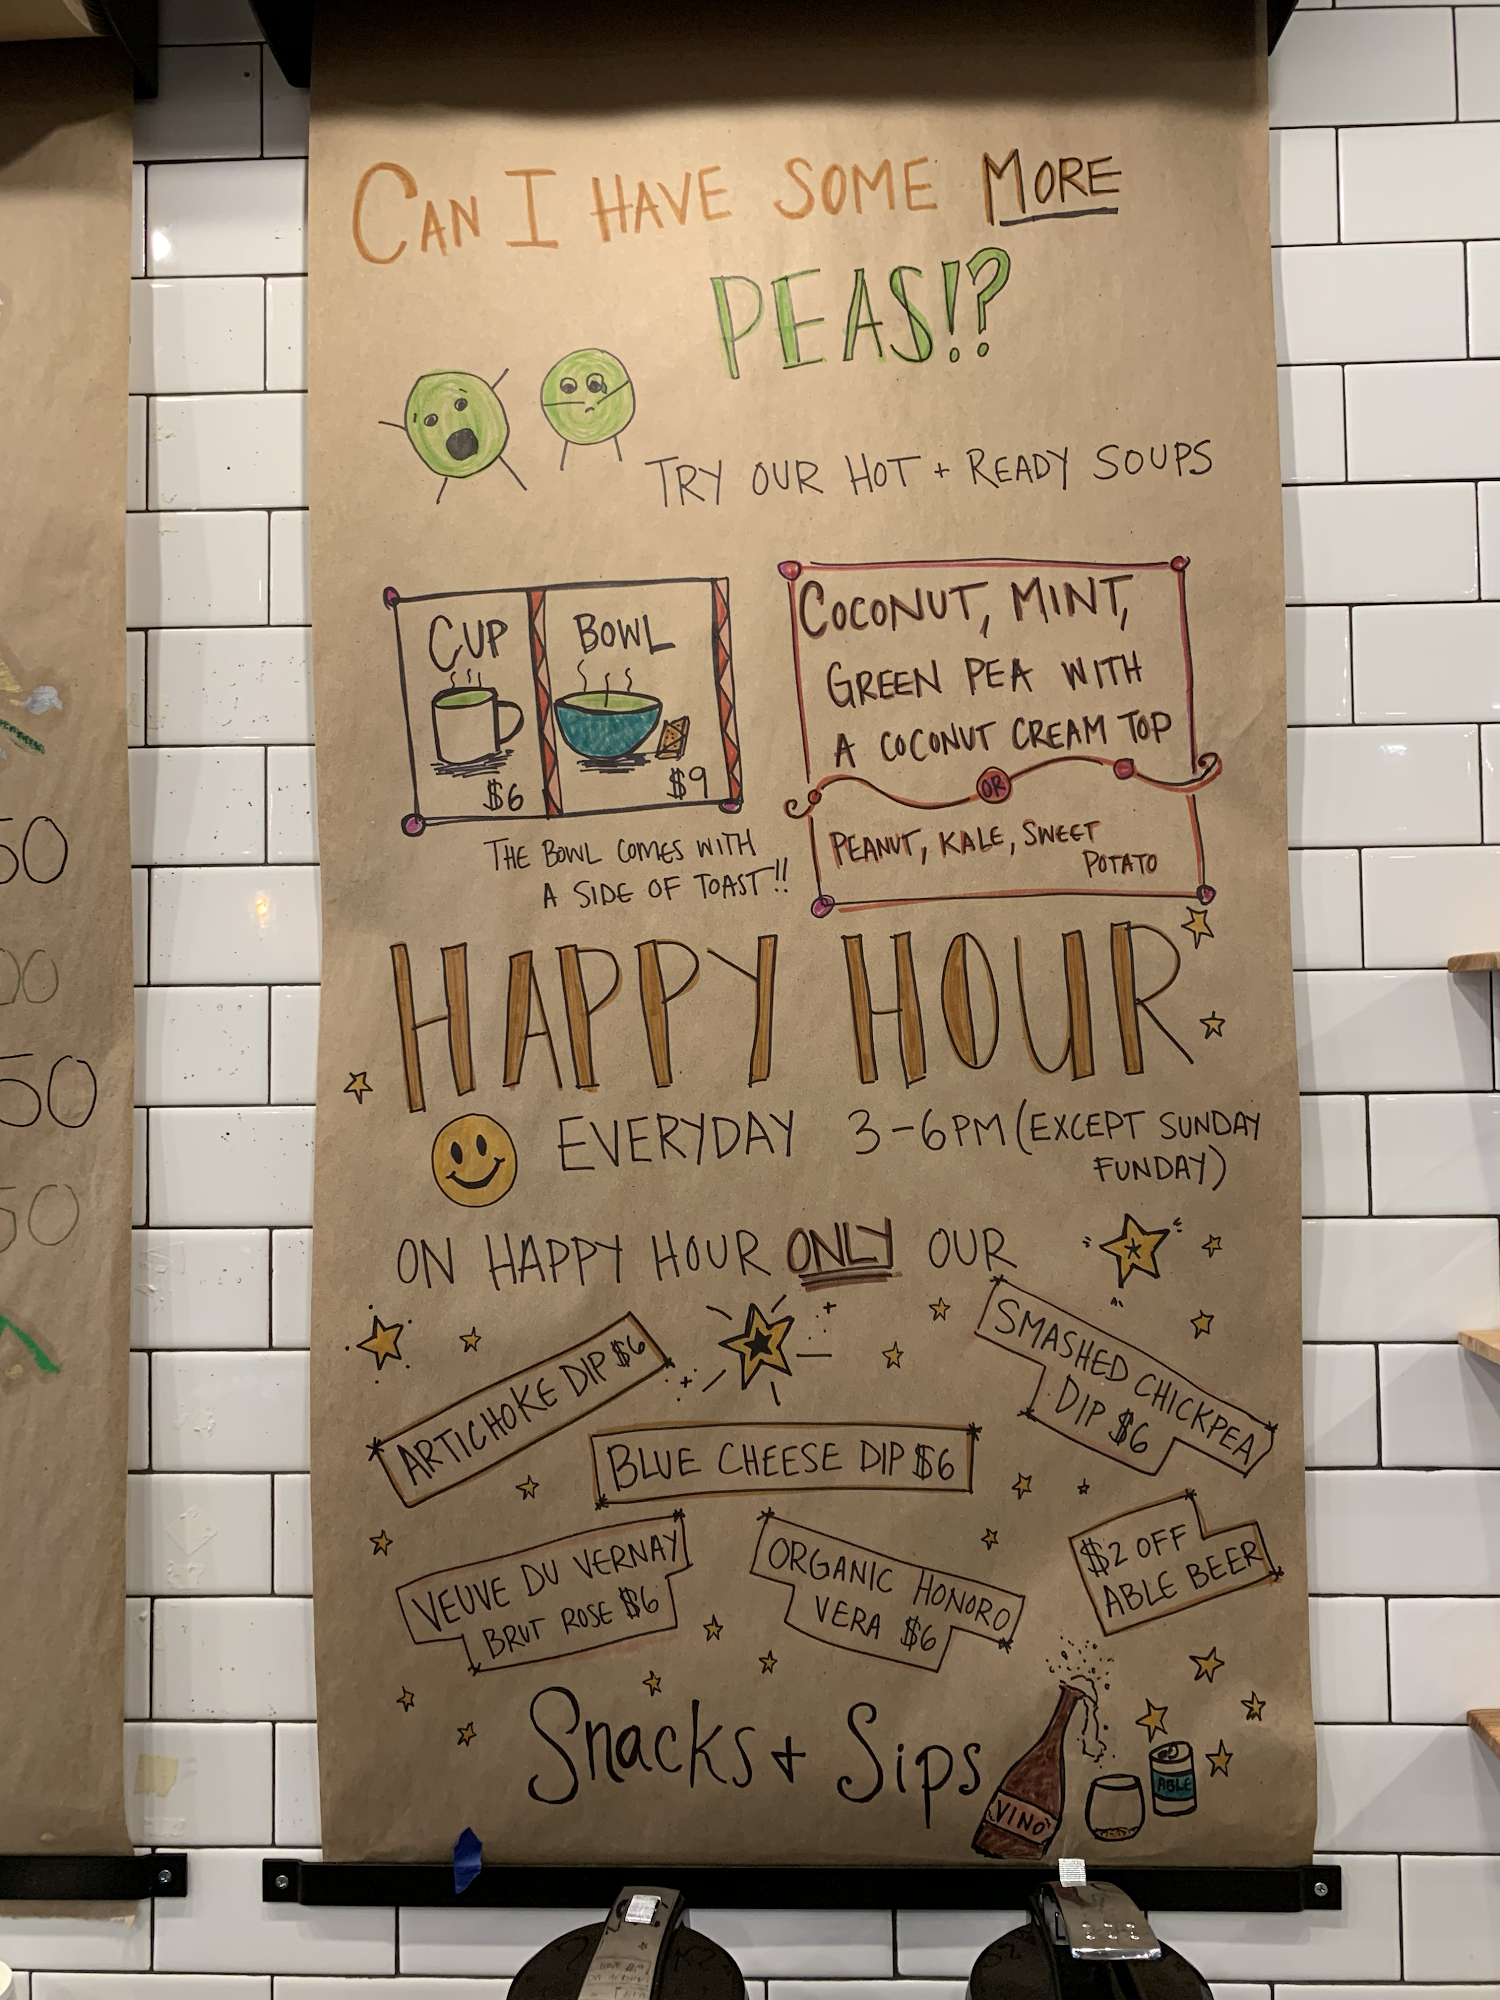 CAN I HAVE SOME MORE
PEAS!?
TRY OUR HOT + READY SOUPS
CUP
$6
BOWL
$9
THE BOWL COMES WITH
A SIDE OF TOAST!!
COCONUT, MINT,
GREEN PEA WITH
A COCONUT CREAM TOP
OR
PEANUT, KALE, SWEET
POTATO
HAPPY HOUR
EVERYDAY 3-6PM (EXCEPT SUNDAY
FUNDAY)
ON HAPPY HOUR ONLY OUR
ARTICHOKE DIP $6
SMASHED CHICKPEA
DIP $6
BLUE CHEESE DIP $6
VEUVE DU VERNAY
BRUT ROSE $6
ORGANIC HONORO
VERA $6
$2 OFF
ABLE BEER
Snacks + Sips
VINO
ABLE
50
00
50
50